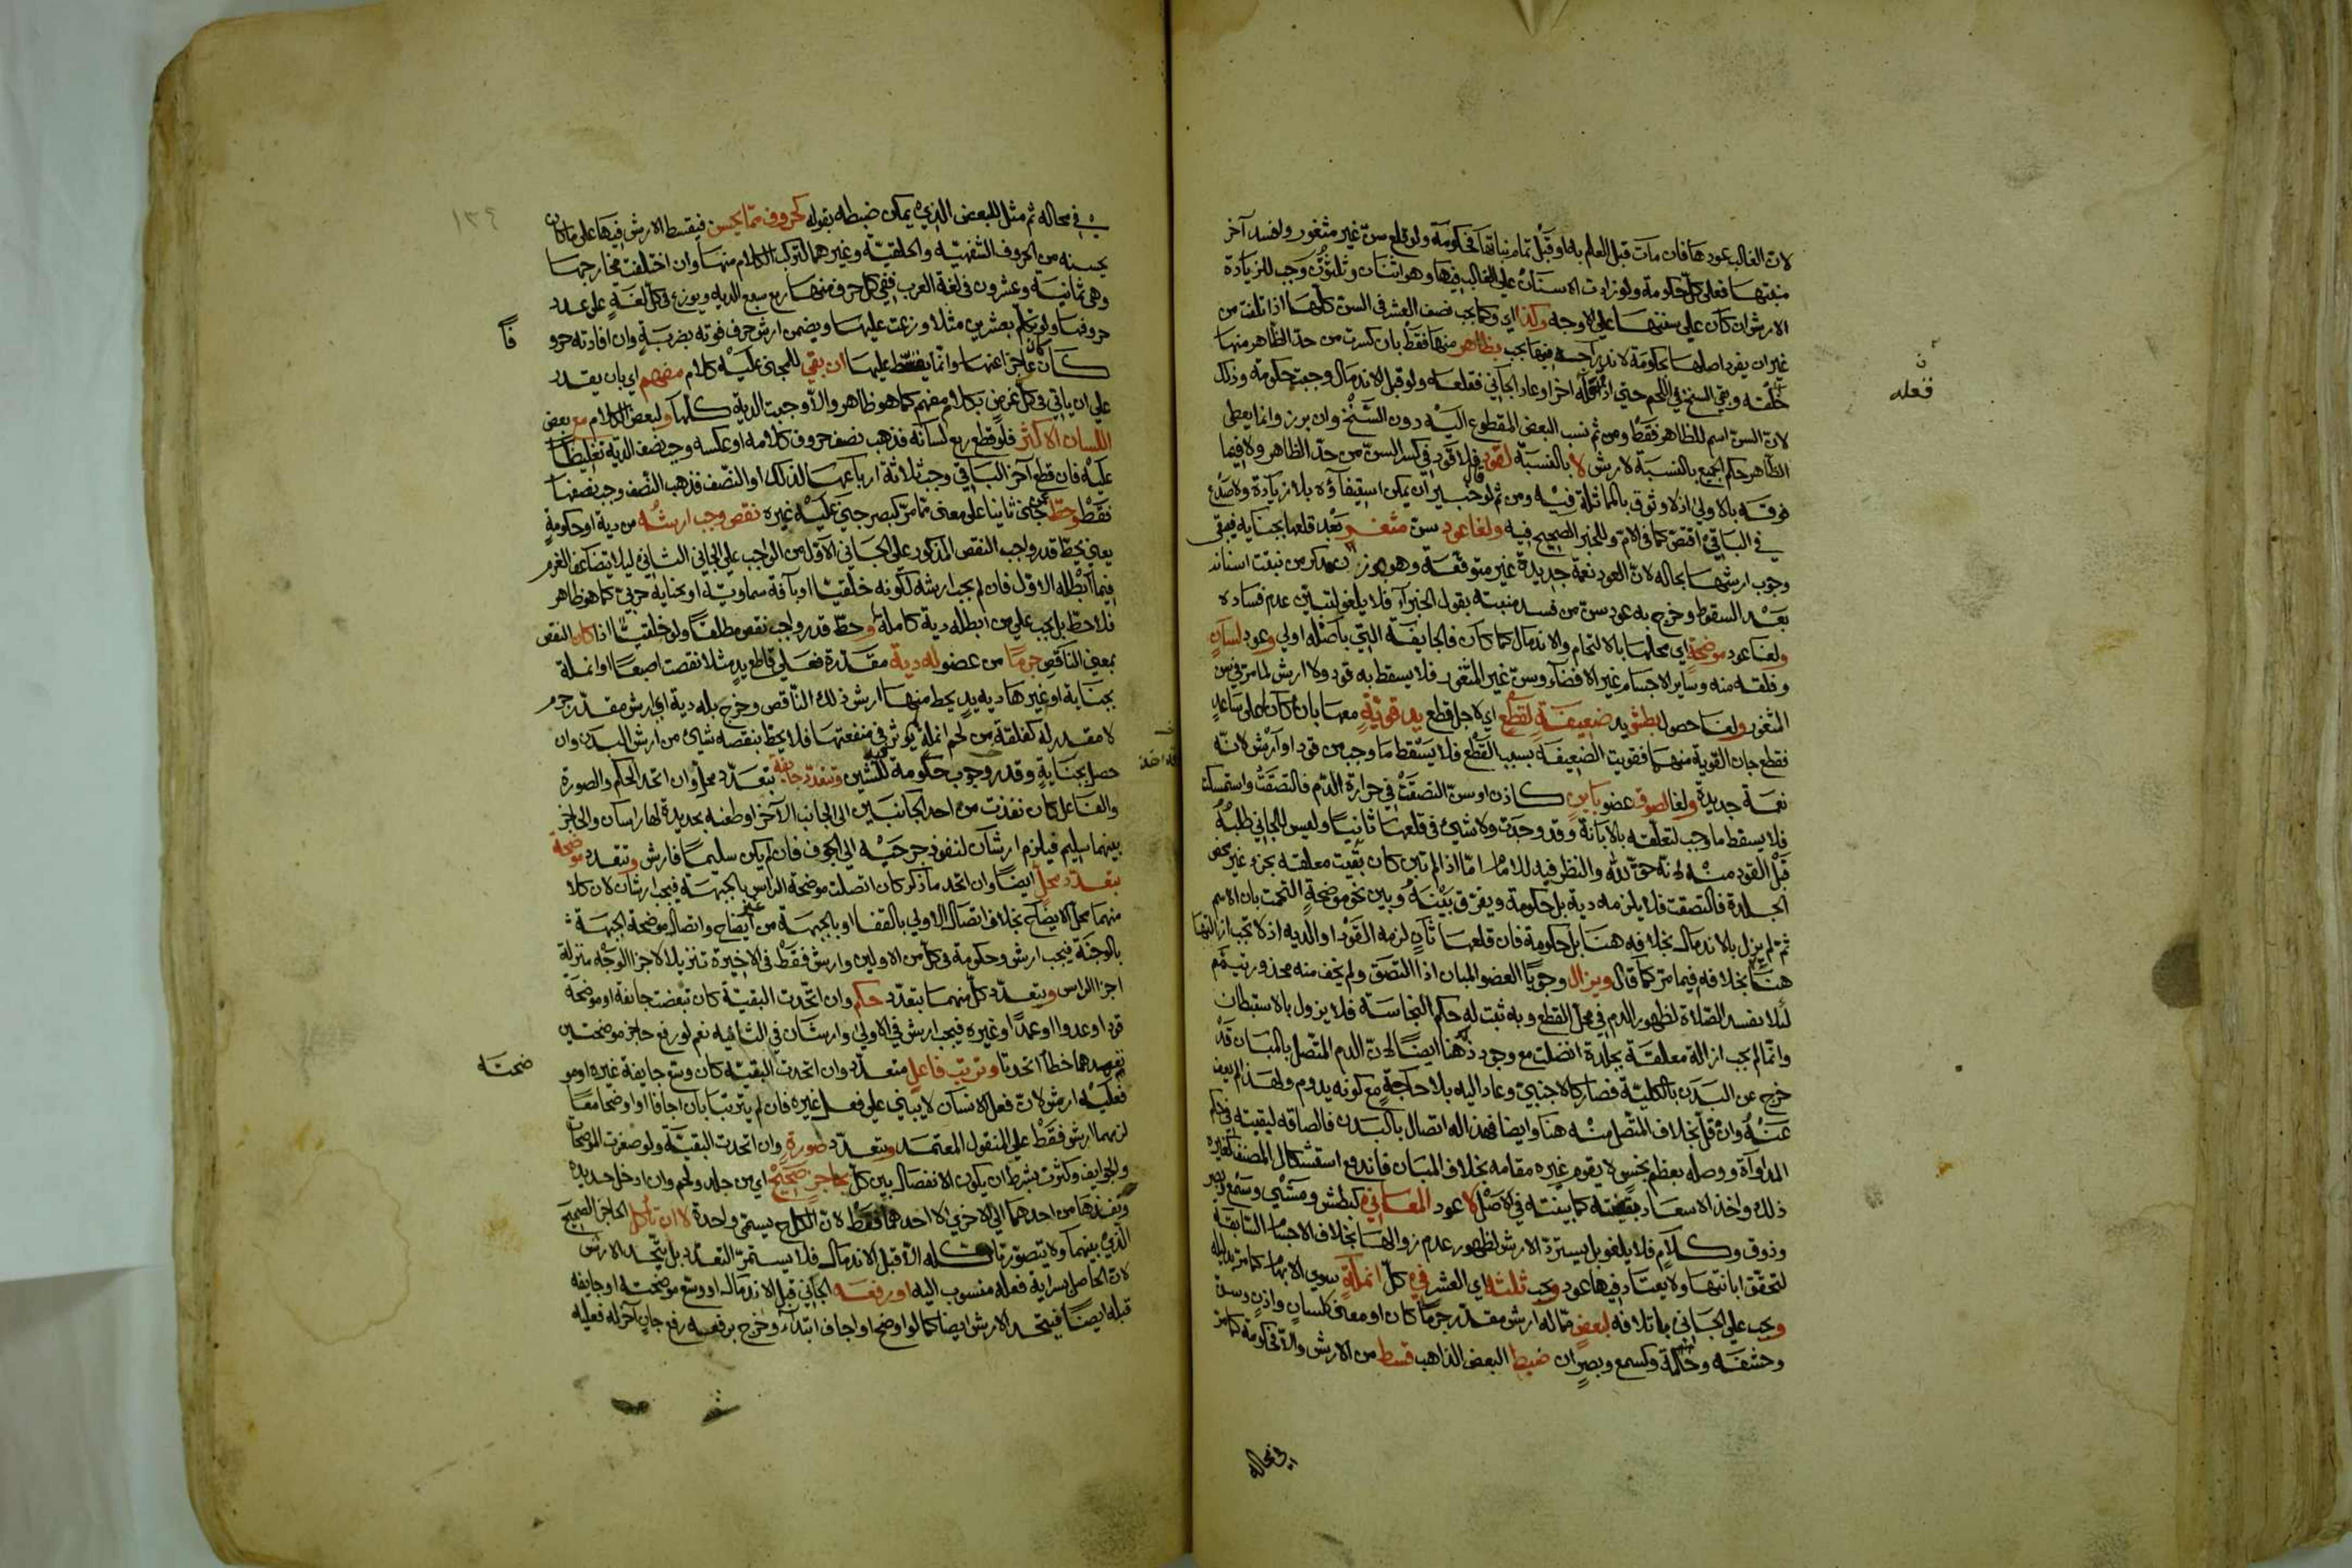 لان الغالب عودها فان مات قبل العلم به او قبل تمام نباتها فحكومة ولو قلع سن غير مثغور وافسد آخر
منبتها فعلى كل حكومة ولو زادت الاسنان على الغالب فيها وهو اثنان وثلثون وجب للزيادة
الارش ان كان على سنتها على الاوجه وكذا اي وكما يجب نصف العشر في السن كلها اذا تلفت من
غير ان يفرد اصلها بحكومة لاندراجه فيها يجب بظاهر منها فقط بان كسرت من حد الظاهر منها
خلقة وبقي السنخ في اللحم حتى اذا قلعه آخر او عاد الجاني فقلعه ولو قبل الاندمال وجبت حكومة وذلك
لان السن اسم للظاهر فقط ومن ثم نسب البعض المقطوع اليه دون السنخ وان برز وانما يعطى
الظاهر حكم الجميع بالنسبة لارش لا بالنسبة لقود فلا قود في كسر السن من حد الظاهر ولا فيما
فوقه بالاولى اذ لا وثوق بالمماثلة فيه ومن ثم لو قال خبير ان يمكن استيفاؤه بلا زيادة ولا صدع
في الباقي اقتص كما في الام وللخبر الصحيح فيه ولغا عود سن مثغور بعد قلعها بجناية فيبقى
وجوب ارشها بحاله لان العود نعمة جديدة غير متوقعة وهو من نبتت اسنانه
بعد السقوط وخرج به عود سن من فسد منبته بقول الخبراء فلا يلغو لتبين عدم فساده
ولغا عود موضحة اي محلها بالالتحام والاندمال كما كان فالجايفة التي باصله اولى وعود لسان
وفلقه منه وساير الاجسام غير الافضاء وسن غير المثغور فلا يسقط به قود ولا ارش لما مر في سن
المثغور ولغا حصول بطش يد ضعيفة لقطع اي لاجل قطع يد قوية معها بان كان على ساعد
فقطع جان القوية منهما فقويت الضعيفة بسبب القطع فلا يسقط ما وجب من قود او ارش لانه
نعمة جديدة ولغا لصوق عضو باين كاذن او سن التصقت في حرارة الدم فالتصقت واستمسكت
فلا يسقط ما وجب لتعلقه بالابانة وقد وجدت ولا شيء في قلعها ثانيا وليس للجاني طلبه
قبل القود منه لانه حق لله والنظر فيه للامام اما اذا لم تبن كان بقيت معلقة بجزء غير محض
الجلدة فالتصقت فلا يلزمه دية بل حكومة ويفرق بينه وبين نحو موضحة التحمت بان الاسم
ثم لم يزل بالاندمال بخلافه هنا بل حكومة فان قلعها ثان لزمه القود او الدية اذ لا تجب ازالتها
هنا بخلافه فيما مر كما قال ويزال وجوبا العضو المبان اذا التصق ولم يخف منه محذور تيمم
لئلا يفسد الصلاة لظهور الدم في محل القطع وبه ثبت له حكم النجاسة فلا يزول بالاستبطان
وانما لم يجب ازالة معلقة بجلدة اتصلت مع وجود ذلك هنا ايضا لان الدم المتصل بالمبان قد
خرج عن البدن بالكلية فصار كالاجنبي وعاد اليه بلا حاجة مع كونه يدوم ولهذا لم يعف
عنه وان قل بخلاف المتصل منه هنا وايضا فهذا له اتصال بالبدن فالصاقه لبقيته في حكم
المداواة ووصله بعظم نجس لا يقوم غيره مقامه بخلاف المبان فاندفع استشكال المصنف كغيره
ذلك واخذ الاسعاد بقضيته كما بينته في الاصل لا عود المعاني كبطش ومشي وسمع وبصر
وذوق وكلام فلا يلغو بل يسترد الارش لظهور عدم زوالها بخلاف الاجسام السابقة
لتحقق ابانتها ولا يعتاد فيها عود ويجب ثلثه اي العشر في كل انملة سوى الابهام كما مر بدليله
ويجب على الجاني باتلافه لبعض مما له ارش مقدر جرما كان او معنى كلسان واذن وسن
وحشفة وحلمة وكسمع وبصر ان ضبط البعض الذاهب قسط من الارش والا فحكومة كما مر
في محاله
ن
فقلعه
١٣٤
في محاله ثم مثل للبعض الذي يمكن ضبطه بقوله كحروف مما يحسن فيقسط الارش فيها على ما كان
يحسنه من الحروف الشفهية والحلقية وغيرهما لتركب الكلام منها وان اختلفت مخارجها
وهي ثمانية وعشرون في لغة العرب ففي كل حرف منها ربع سبع الدية ويوزع في كل لغة على عدد
حروفها ولو تكلم بعشرين مثلا وزعت عليها ويضمن ارش حرف فوته بضربة وان افادته حروفا
كان عاجزا عنها وانما يقسط عليها ان بقي للمجني عليه كلام مفهم اي بان يقدر
على ان ياتي في كل غرض بكلام مفهم كما هو ظاهر والا وجبت الدية كلها ولبعض الكلام مع بعض
اللسان الاكثر فلو قطع ربع لسانه فذهب نصف حروف كلامه او عكسه وجب نصف الدية تغليظا
عليه فان قطع آخر الباقي وجب ثلاثة ارباعها لذلك او النصف فذهب النصف وجب نصفها
فقط وحط عمن جنى ثانيا على معنى مما مر كبصر جنى عليه غيره نقص وجب ارشه من دية او حكومة
يعني يحط قدر واجب النقص المذكور على الجاني الاول من الواجب على الجاني الثاني ليلا يتضاعف الغرم
فيما ابطله الاول فان لم يجب ارشه لكونه خلقيا او بآفة سماوية او بجناية حربي كما هو ظاهر
فلا حط بل يجب على من ابطله دية كاملة وحط قدر واجب نقص مطلقا ولو خلقيا اذا كان النقص
بمعنى الناقص جرما من عضو له دية مقدرة فعلى قاطع يد مثلا نقصت اصبعا او انملة
بجناية او غيرها دية يد يحط منها ارش ذلك الناقص وخرج بله دية اي ارش مقدر جرم
لا مقدر له كفلقة من لحم انملة لم يؤثر في منفعتها فلا يحط بنقصه شيء من ارش اليد وان
حصل بجناية وقدر وجوب حكومة للشين وتتعدد جايفة بتعدد محل وان اتحد الحكم والصورة
والفاعل كان نفذت من احد الجانبين الى الجانب الآخر او طعنه بحديدة لها راسان والحاجز
بينهما سليم فيلزم ارشان لنفوذ جرحيه الى الجوف فان لم يكن سليما فارش وتتعدد موضحة
بتعدد محل ايضا وان اتحد ما ذكر كان اتصلت موضحة الراس بالجبهة فيجب ارشان لان كلا
منهما محل الايضاح بخلاف اتصال الاولى بالقفا او بالجبهة من غير ايضاح واتصال موضحة الجبهة
بالوجنة فيجب ارش وحكومة في كل من الاوليين وارش فقط في الاخيرة تنزيلا لاجزا الوجه منزلة
اجزا الراس ويتعدد كل منهما بتعدد حكم وان اتحدت البقية كان تبعضت جايفة او موضحة
قودا وعدوا او عمدا وغيره فيجب ارش في الاولى وارشان في الثانية نعم لو رفع حاجز موضحتين
تعمدهما خطأ اتحدتا وترتب فاعل متعدد وان اتحدت البقية كان وسع جايفة غيره او موضحته
فعليه ارش لان فعل الانسان لا يبنى على فعل غيره فان لم يترتبا بان اجافا او اوضحا معا
لزمهما ارش فقط على المنقول المعتمد ويتعدد صورة وان اتحدت البقية ولو صغرت الموضحات
والجوايف وكثرت بشرط ان يكون الانفصال بين كل بحاجز صحيح اي من جلد ولحم وان ادخل حديدة
ونفذها من احدهما الى الاخرى لا احدهما فقط لان الكل ح يسمى واحدة لا ان تأكل الحاجز الصحيح
الذي بينهما ولا يتصور تاكله الا قبل الاندمال فلا يستمر التعدد بل يتحد الارش
لان الحاصل بسراية فعله منسوب اليه او رفعه الجاني قبل الاندمال او وسع موضحته او جايفته
قبله ايضا فيتحد الارش ايضا كما لو اوضح او اجاف ابتداء وخرج برفعه رفع جان آخر له فعليه